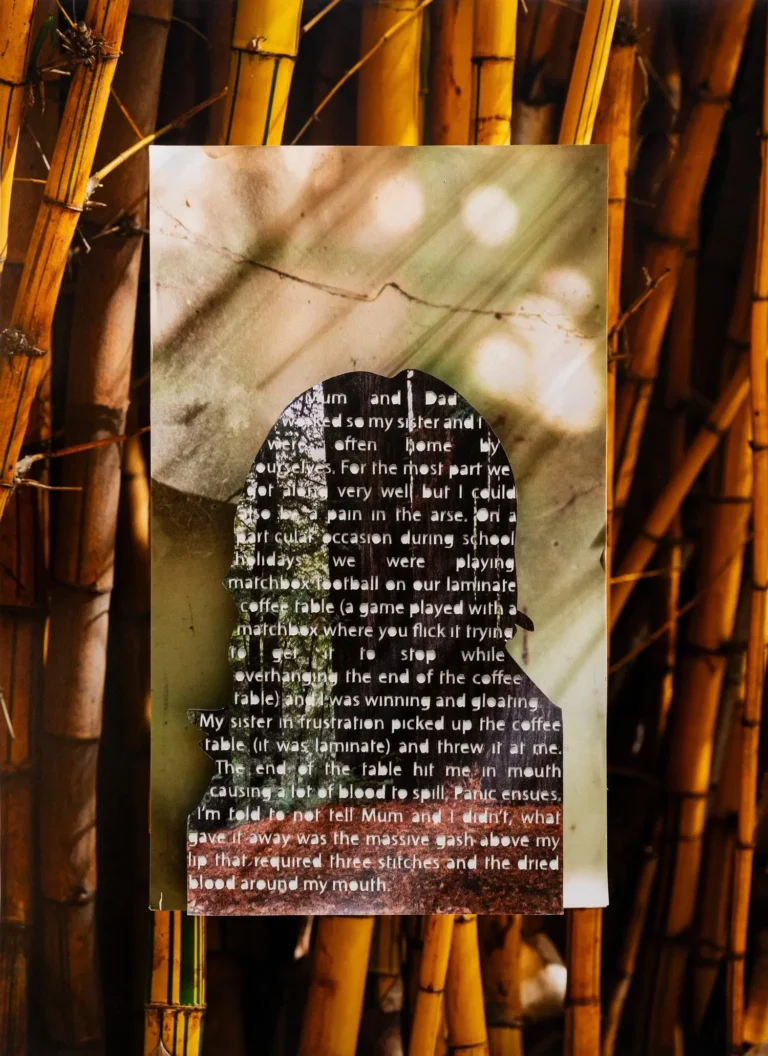 Mum and Dad
worked so my sister and I
were often home by
ourselves. For the most part we
got along very well but I could
also be a pain in the arse. On a
particular occasion during school
holidays we were playing
matchbox football on our laminate
coffee table (a game played with a
matchbox where you flick it trying
to get it to stop while
overhanging the end of the coffee
table) and I was winning and gloating.
My sister in frustration picked up the coffee
table (it was laminate) and threw it at me.
The end of the table hit me in mouth
causing a lot of blood to spill. Panic ensues,
I'm told to not tell Mum and I didn't, what
gave it away was the massive gash above my
lip that required three stitches and the dried
blood around my mouth.